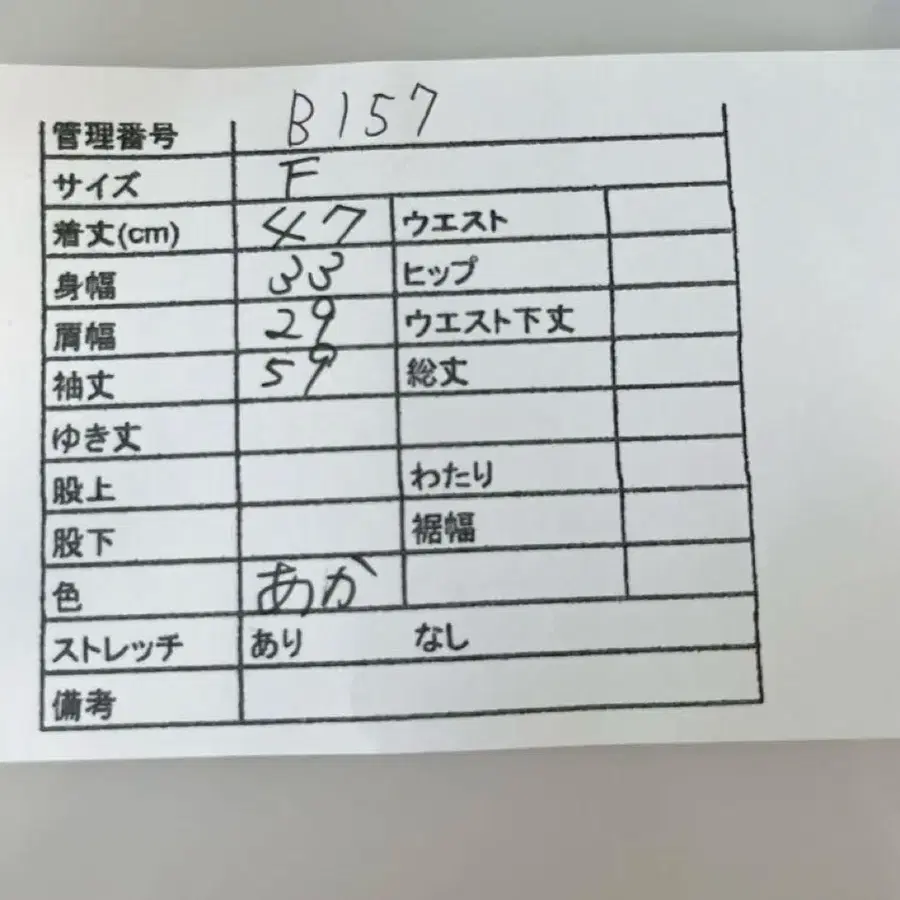 管理番号 B157
サイズ F
着丈(cm) 47 ウエスト
身幅 33 ヒップ
肩幅 29 ウエスト下丈
袖丈 59 総丈
ゆき丈
股上 わたり
股下 裾幅
色 あか
ストレッチ あり なし
備考